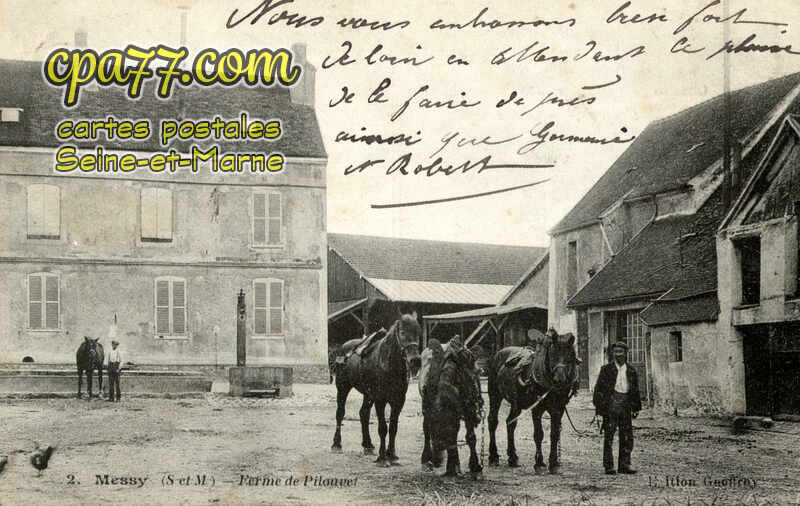 Nous vous embrassons bien fort
de loin en attendant le plaisir
de le faire de près
ainsi que Germaine
et Robert
cpa77.com
cartes postales
Seine-et-Marne
2. Messy (S et M) — Ferme de Pilouvet
Edition Gueffroy